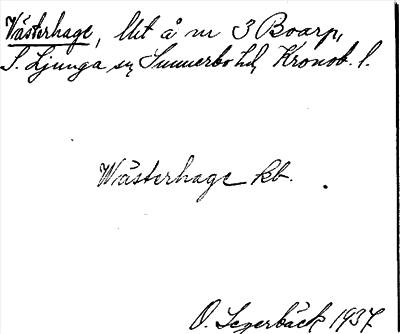 Västerhage, lht å nr 3 Boarp,
S. Ljunga sn, Sunnerbo hd, Kronob. l.
Wästerhage kb.
O. Segerbäck 1937